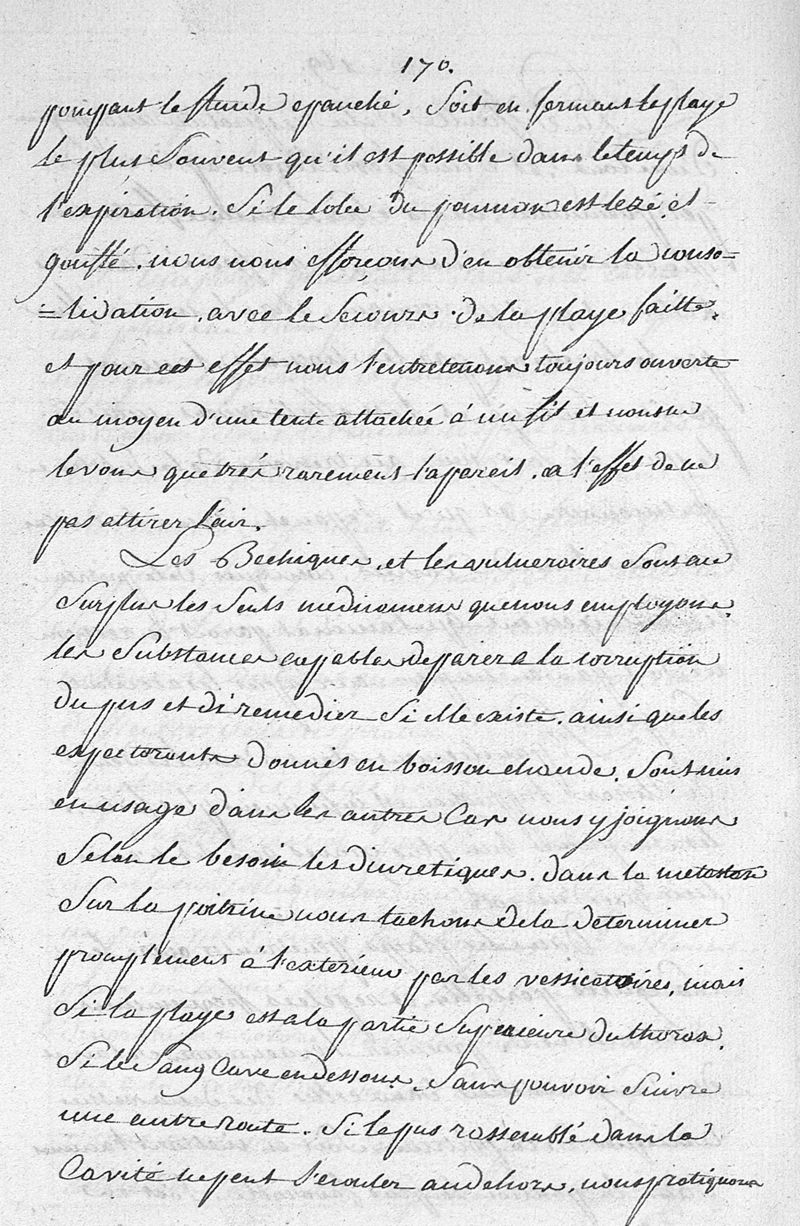 170.
pompant le fluide epanché, Soit en fermant la playe
le plus Souvent qu'il est possible dans le temps de
l'expiration. Si le lobe du poumon est lezé et
gonflé. nous nous efforçons d'en obtenir la conso=
=lidation, avec le Secours de la playe faitte,
et pour cet effet nous l'entretenons toujours ouverte
au moyen d'une tente attachée à un fil et nous ne
levons que trés rarement l'apareil. a l'effet de ne
pas attirer l'air.
Les Bechiques, et les vulneraires Sont au
Surplus les Seuls medicamens que nous employons.
les Substances capables de parer a la corruption
du pus et d'i remedier Si elle existe. ainsi que les
expectorants donnés en boisson chaude. Sont mis
en usage dans les autres Cas nous y joignons
Selon le besoin les diuretiques. dans la metastase
Sur la poitrine nous tachons de la determiner
promptement à l'exterieur par les vessicatoires, mais
Si la playe est a la partie Superieure du thorax.
Si le Sang Cave en dessous, Sans pouvoir Suivre
une autre route. Si le pus rassemblé dans la
Cavité ne peut S'ecouler au dehors, nous pratiquons